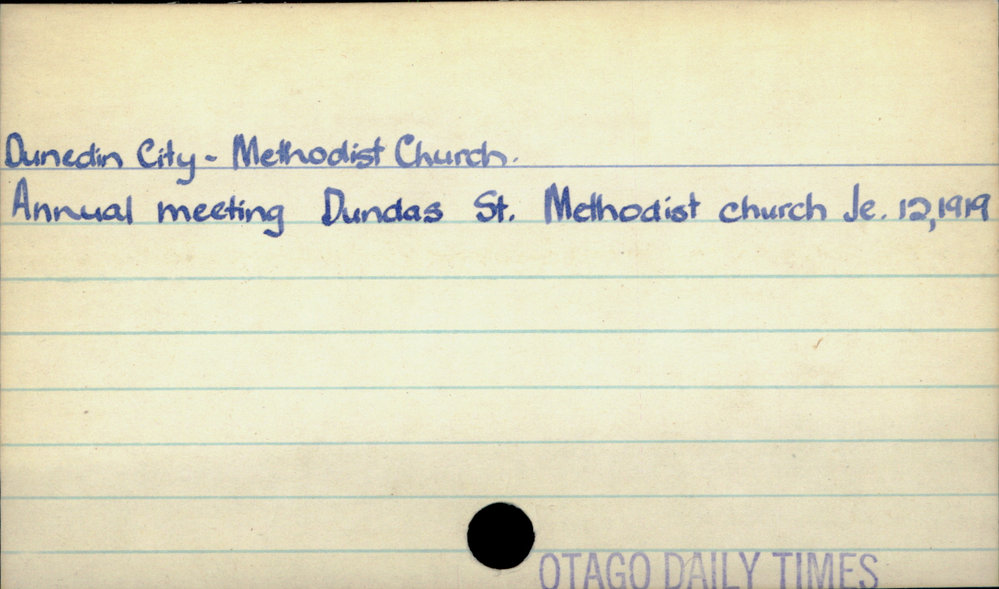 Dunedin City - Methodist Church.
Annual meeting Dundas St. Methodist church Je. 12, 1919
OTAGO DAILY TIMES